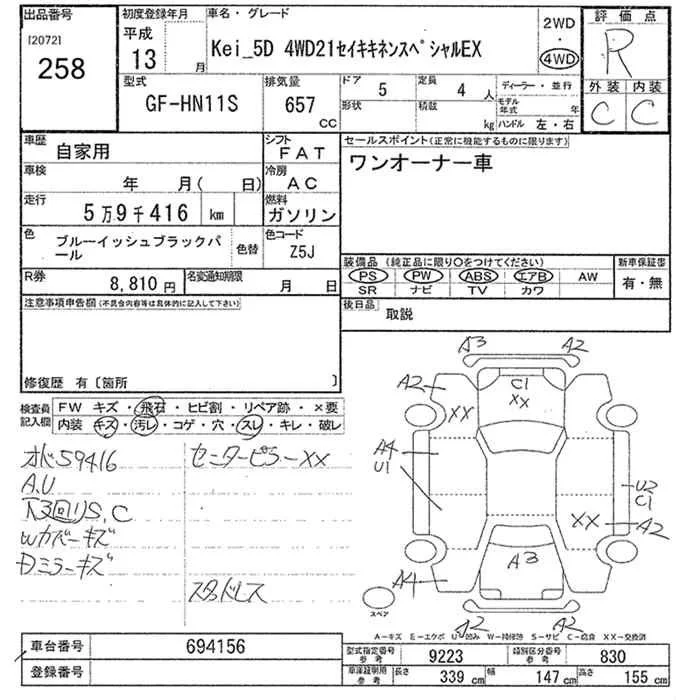 出品番号 初度登録年月 車名・グレード 2WD 評価点
[2072] 平成 ・ R
258 13 月 Kei_5D 4WD21セイキキネンスペシャルEX 4WD
型式 排気量 ドア 5 定員 4 人 ディーラー・並行 外装 内装
GF-HN11S 657 cc 形状 積載 kg モデル年式 年 C C
ハンドル 左・右
車歴 自家用 シフト FAT セールスポイント(正常に機能するものに限ります)
車検 年 月( 日) 冷房 AC ワンオーナー車
走行 5万9千416 km 燃料 ガソリン
色 ブルーイッシュブラックパール 色替 色コード Z5J
装備品(純正品に限り○をつけてください) 新車保証書
R券 8,810円 名変通知期限 月 日 PS PW ABS エアB AW 有・無
SR ナビ TV カワ
注意事項申告欄(不具合内容等は具体的に記入して下さい) 後日品 取説
修復歴 有〔箇所 〕
検査員記入欄 FW キズ・飛石・ヒビ割・リペア跡・×要
内装 キズ・汚レ・コゲ・穴・スレ・キレ・破レ
オド59416 センターピラーXX
A.U
下3回りS,C
Wカバーキズ
Dミラーキズ
スタッドレス
A3 A2
A2 C1 A2
XX XX
A4
U1 U2
C1
XX A2
A3
A4
スペア A2 A2
A-キズ E-エクボ U-凹み W-補修跡 S-サビ C-腐食 XX-交換済
車台番号 694156 型式指定番号 参考 9223 類別区分番号 参考 830
登録番号 車庫証明用 参考 長さ 339 cm 幅 147 cm 高さ 155 cm